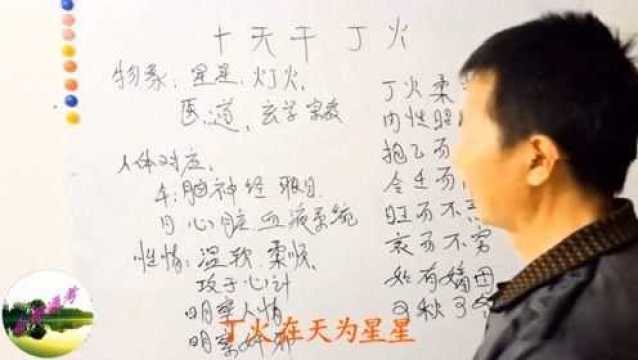 十天干 丁火
物象：星星、灯火、
医、道、玄学宗教
人体对应：
年：脑神经 眼目
月 心脏 血液系统
性情：温软 柔顺、
攻于心计
明察人情
明察
丁火柔
内性昭
抱乙而
合壬而
旺而不
衰而不穷
如有嫡母
可秋可冬
丁火在天为星星